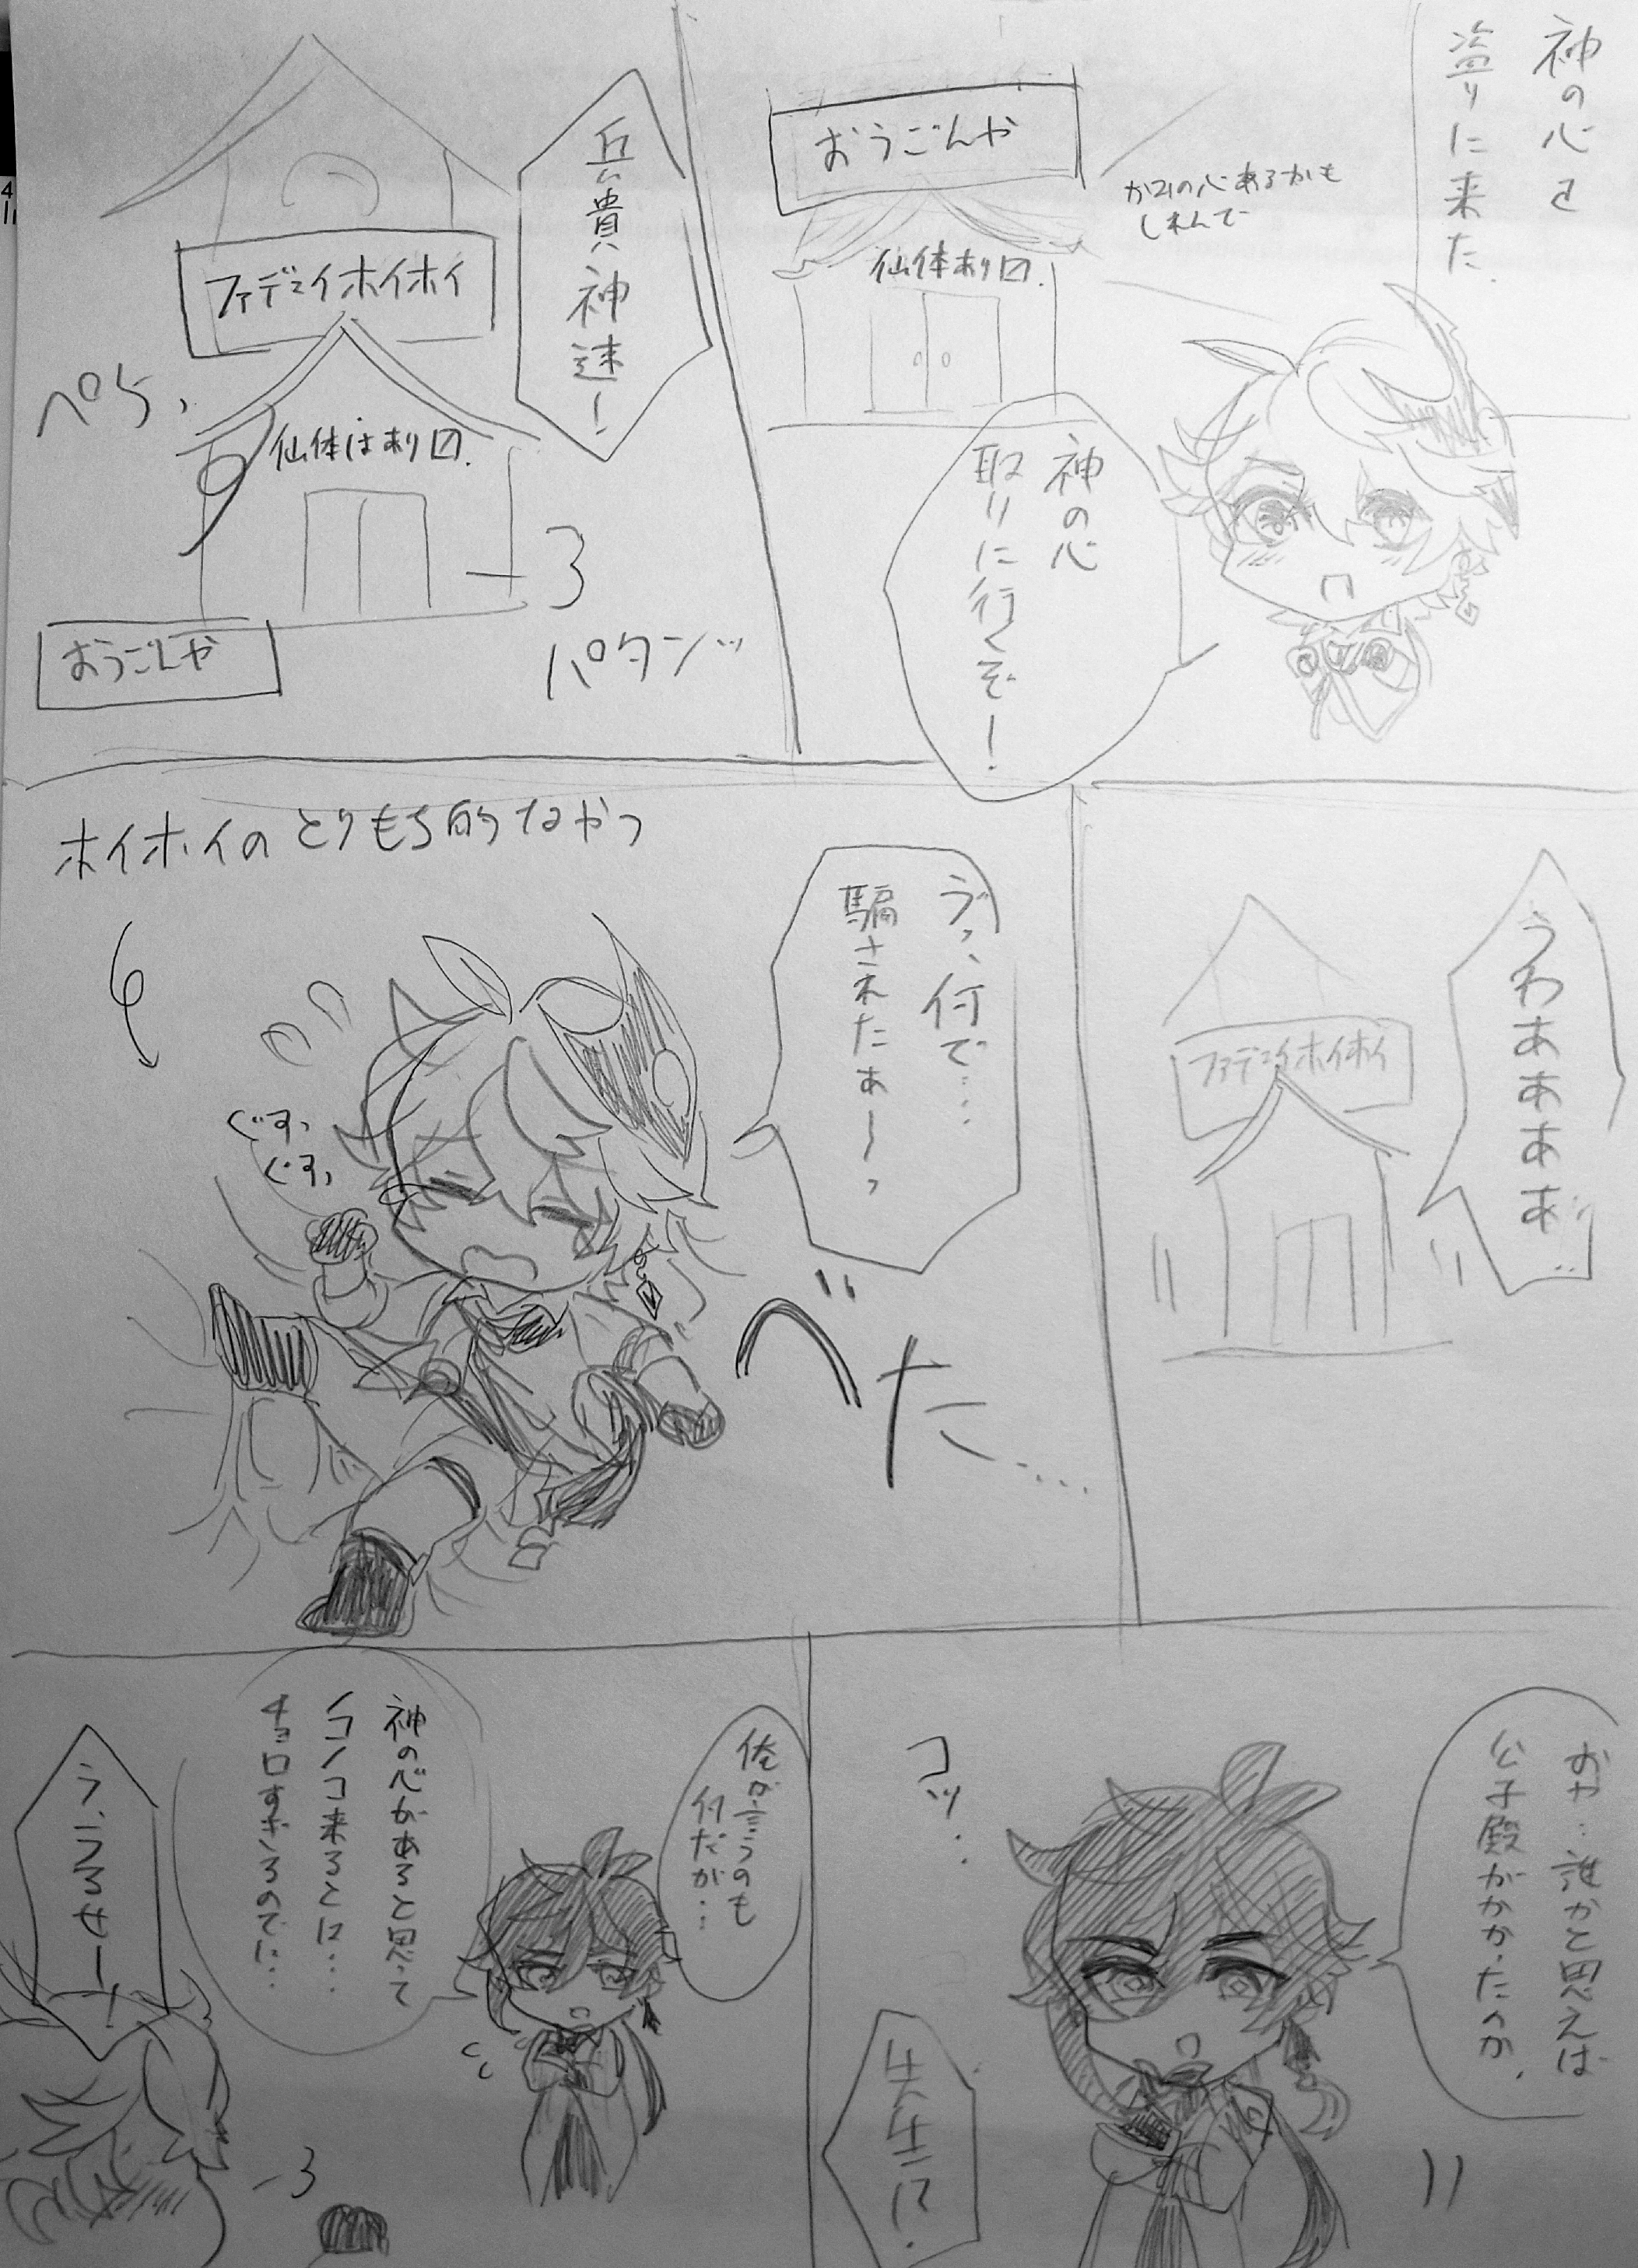 神の心を
盗りに来た.
おうごんや
かみの心あるかも
しれんで
仙体あり〼.
神の心
取りに行くぞ!
兵貴神速!
ファデュイホイホイ
ペら、
仙体はあり〼.
おうごんや
パタンッ
うわああああ
ファデュイホイホイ
ゔっ、何で…
騙されたぁ〜っ
ホイホイのとりもち的なやつ
ぐすっ
ぐすっ
べた…
おや…誰かと思えば
公子殿がかかったのか.
コッ..
先生!?
俺が言うのも
何だが…
神の心があると思って
ノコノコ来るとは…
チョロすぎるのでは…
う、うるせー!